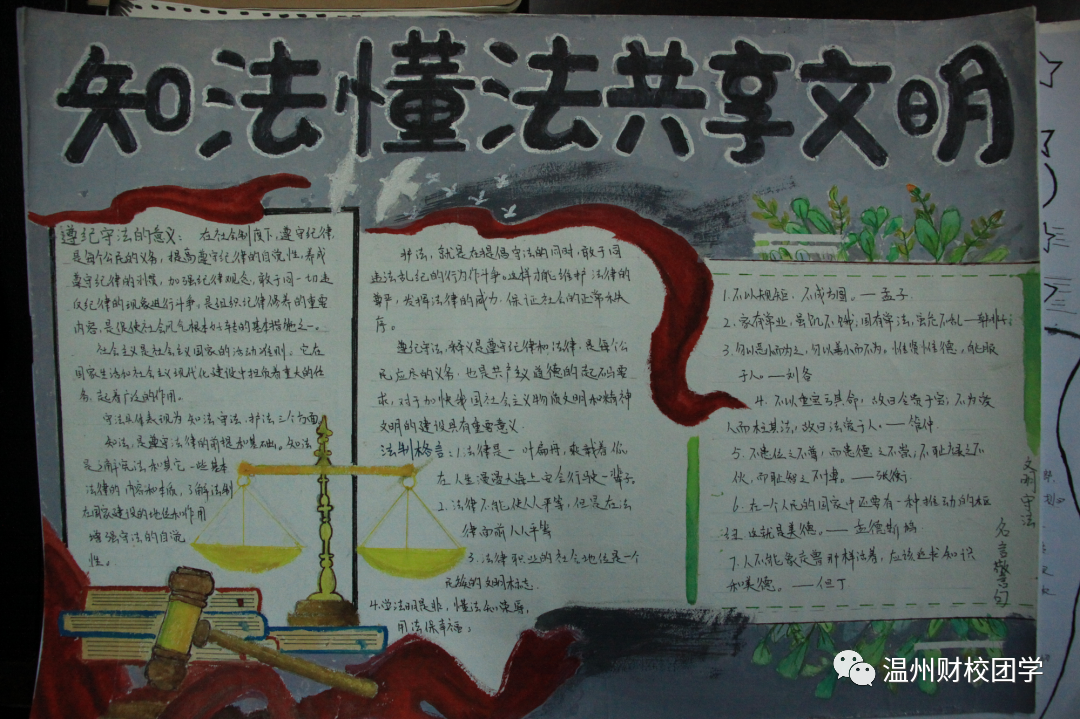 知法懂法共享文明
遵纪守法的意义：在社会制度下，遵守纪律，
是每个公民的义务，提高遵守纪律的自觉性，养成
遵守纪律的习惯，加强纪律观念，敢于同一切违
反纪律的现象进行斗争。是组织纪律修养的重要
内容，是促使社会风气根本好转的基本措施之一。
社会主义是社会主义国家的活动准则。它在
国家生活和社会主义现代化建设中担负着重大的任
务，起着广泛的作用。
守法具体表现为知法、守法、护法，三个方面
知法，是遵守法律的前提和基础。知法
是了解宪法和其它一些基本
法律的内容和本质，了解法制
在国家建设的地位和作用
增强守法的自觉
性。
护法，就是在提倡守法的同时，敢于同
违法乱纪的行为作斗争。这样才能维护法律的
尊严，发挥法律的威力，保证社会的正常秩
序。
遵纪守法，释义是遵守纪律和法律，是每个公
民应尽的义务，也是共产主义道德的起码要
求，对于加快我国社会主义物质文明和精神
文明的建设具有重要意义.
法制格言：1.法律是一叶扁舟，乘载着你
在人生漫漫大海上安全行驶一辈子
2.法律不能使人人平等，但是在法
律面前人人平等
3.法律职业的社会地位是一个
民族的文明标志.
4.学法明是非，懂法知荣辱，
用法保幸福；
1.不以规矩，不成方圆。——孟子.
2.家有常业，虽饥不饿；国有常法，虽危不乱——韩非子；
3.勿以恶小而为之，勿以善小而不为，惟贤惟德，能服
于人。——刘备
4.不以重宝亏其命，故曰令贵于宝；不为爱
人而枉其法，故曰法爱于人.——管仲.
5.不患位之不尊，而患德之不崇；不耻禄之不
伙，而耻智之不博。——张衡.
6.在一个人民的国家中还要有一种推动的枢
纽，这就是美德。——孟德斯鸠
7.人不能象走兽那样活着，应该追求知识
和美德。——但丁
文明守法
名言警句
温州财校团学